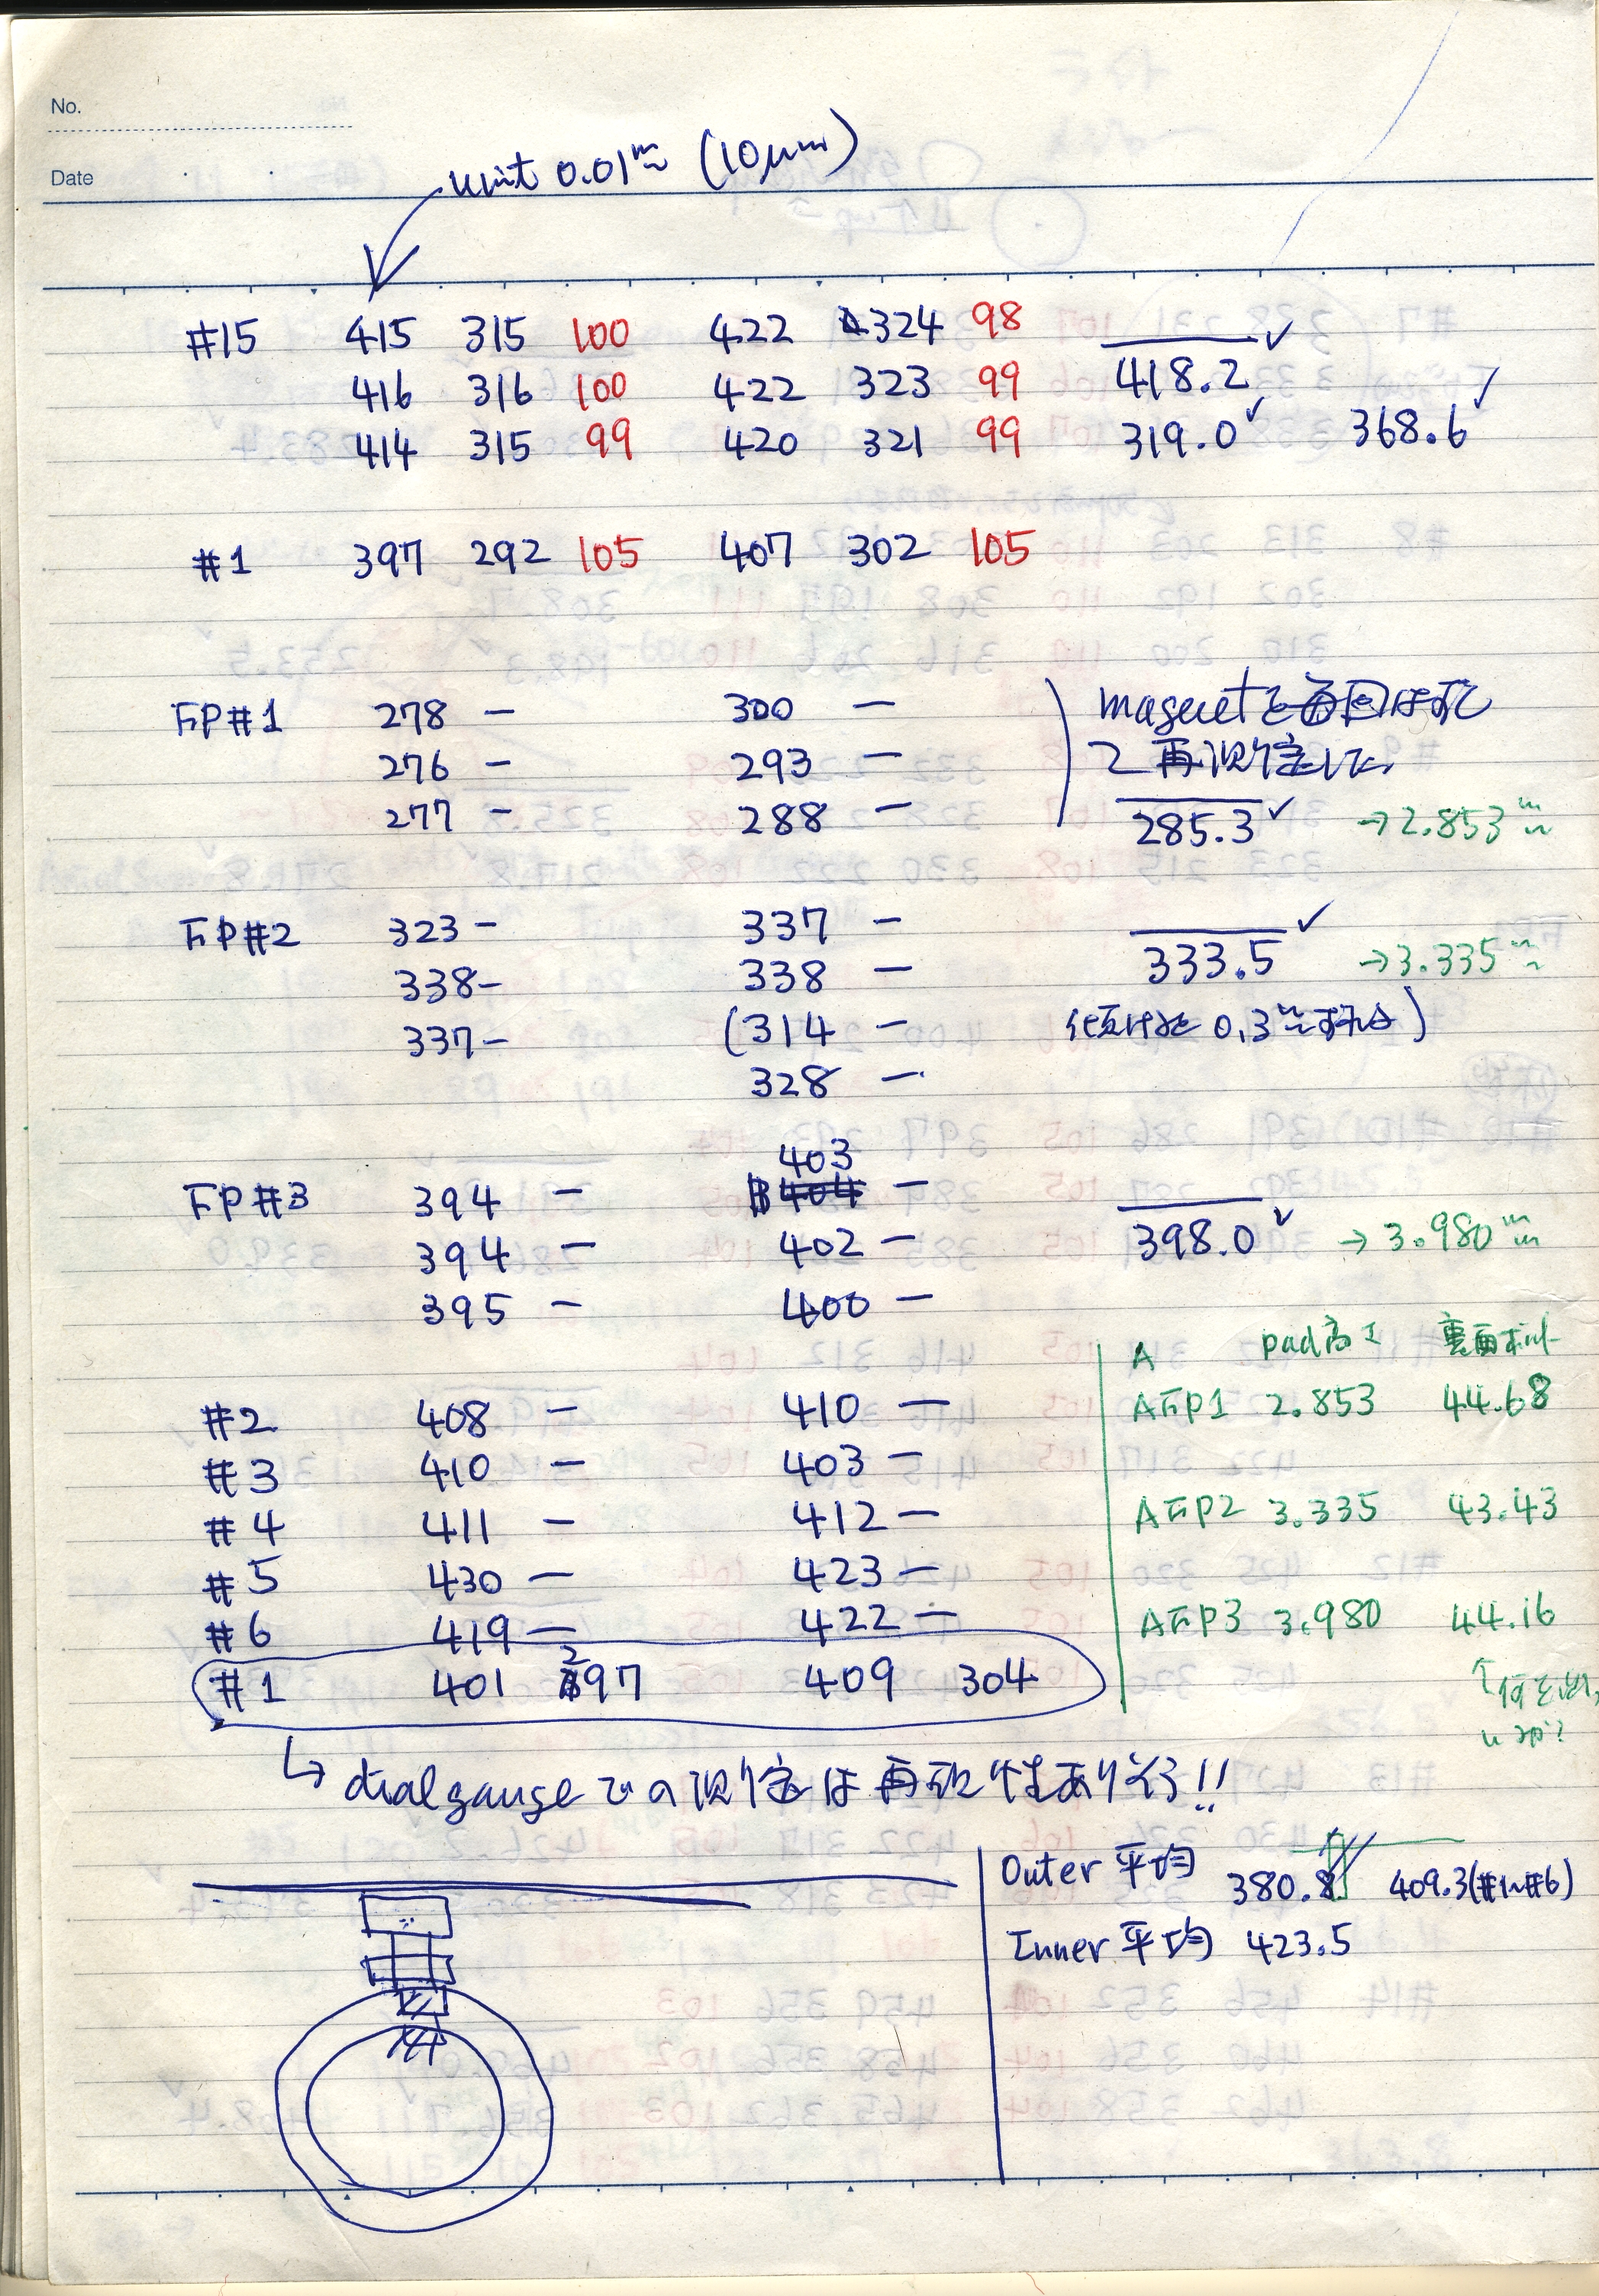 No.
Date
unit 0.01mm (10μm)
#15 415 315 100 422 324 98
416 316 100 422 323 99 418.2
414 315 99 420 321 99 319.0 368.6
#1 397 292 105 407 302 105
FP#1 278 - 300 - magnetを毎回はずし
276 - 293 - て再測定した
277 - 288 - 285.3 →2.853mm
FP#2 323 - 337 - 333.5 →3.335mm
338 - 338 -
337 - (314 - 傾けると 0.3mm )
328 -
403
FP#3 394 - 404 - 398.0 → 3.980mm
394 - 402 -
395 - 400 -
#2 408 - 410 -
#3 410 - 403 -
#4 411 - 412 -
#5 430 - 423 -
#6 419 - 422 -
#1 401 297 409 304
A pad高さ 裏面
AFP1 2.853 44.68
AFP2 3.335 43.43
AFP3 3.980 44.16
↑
↳ dial gauge での測定は再現性あり
Outer 平均 380.8 409.3(#1~#6)
Inner 平均 423.5